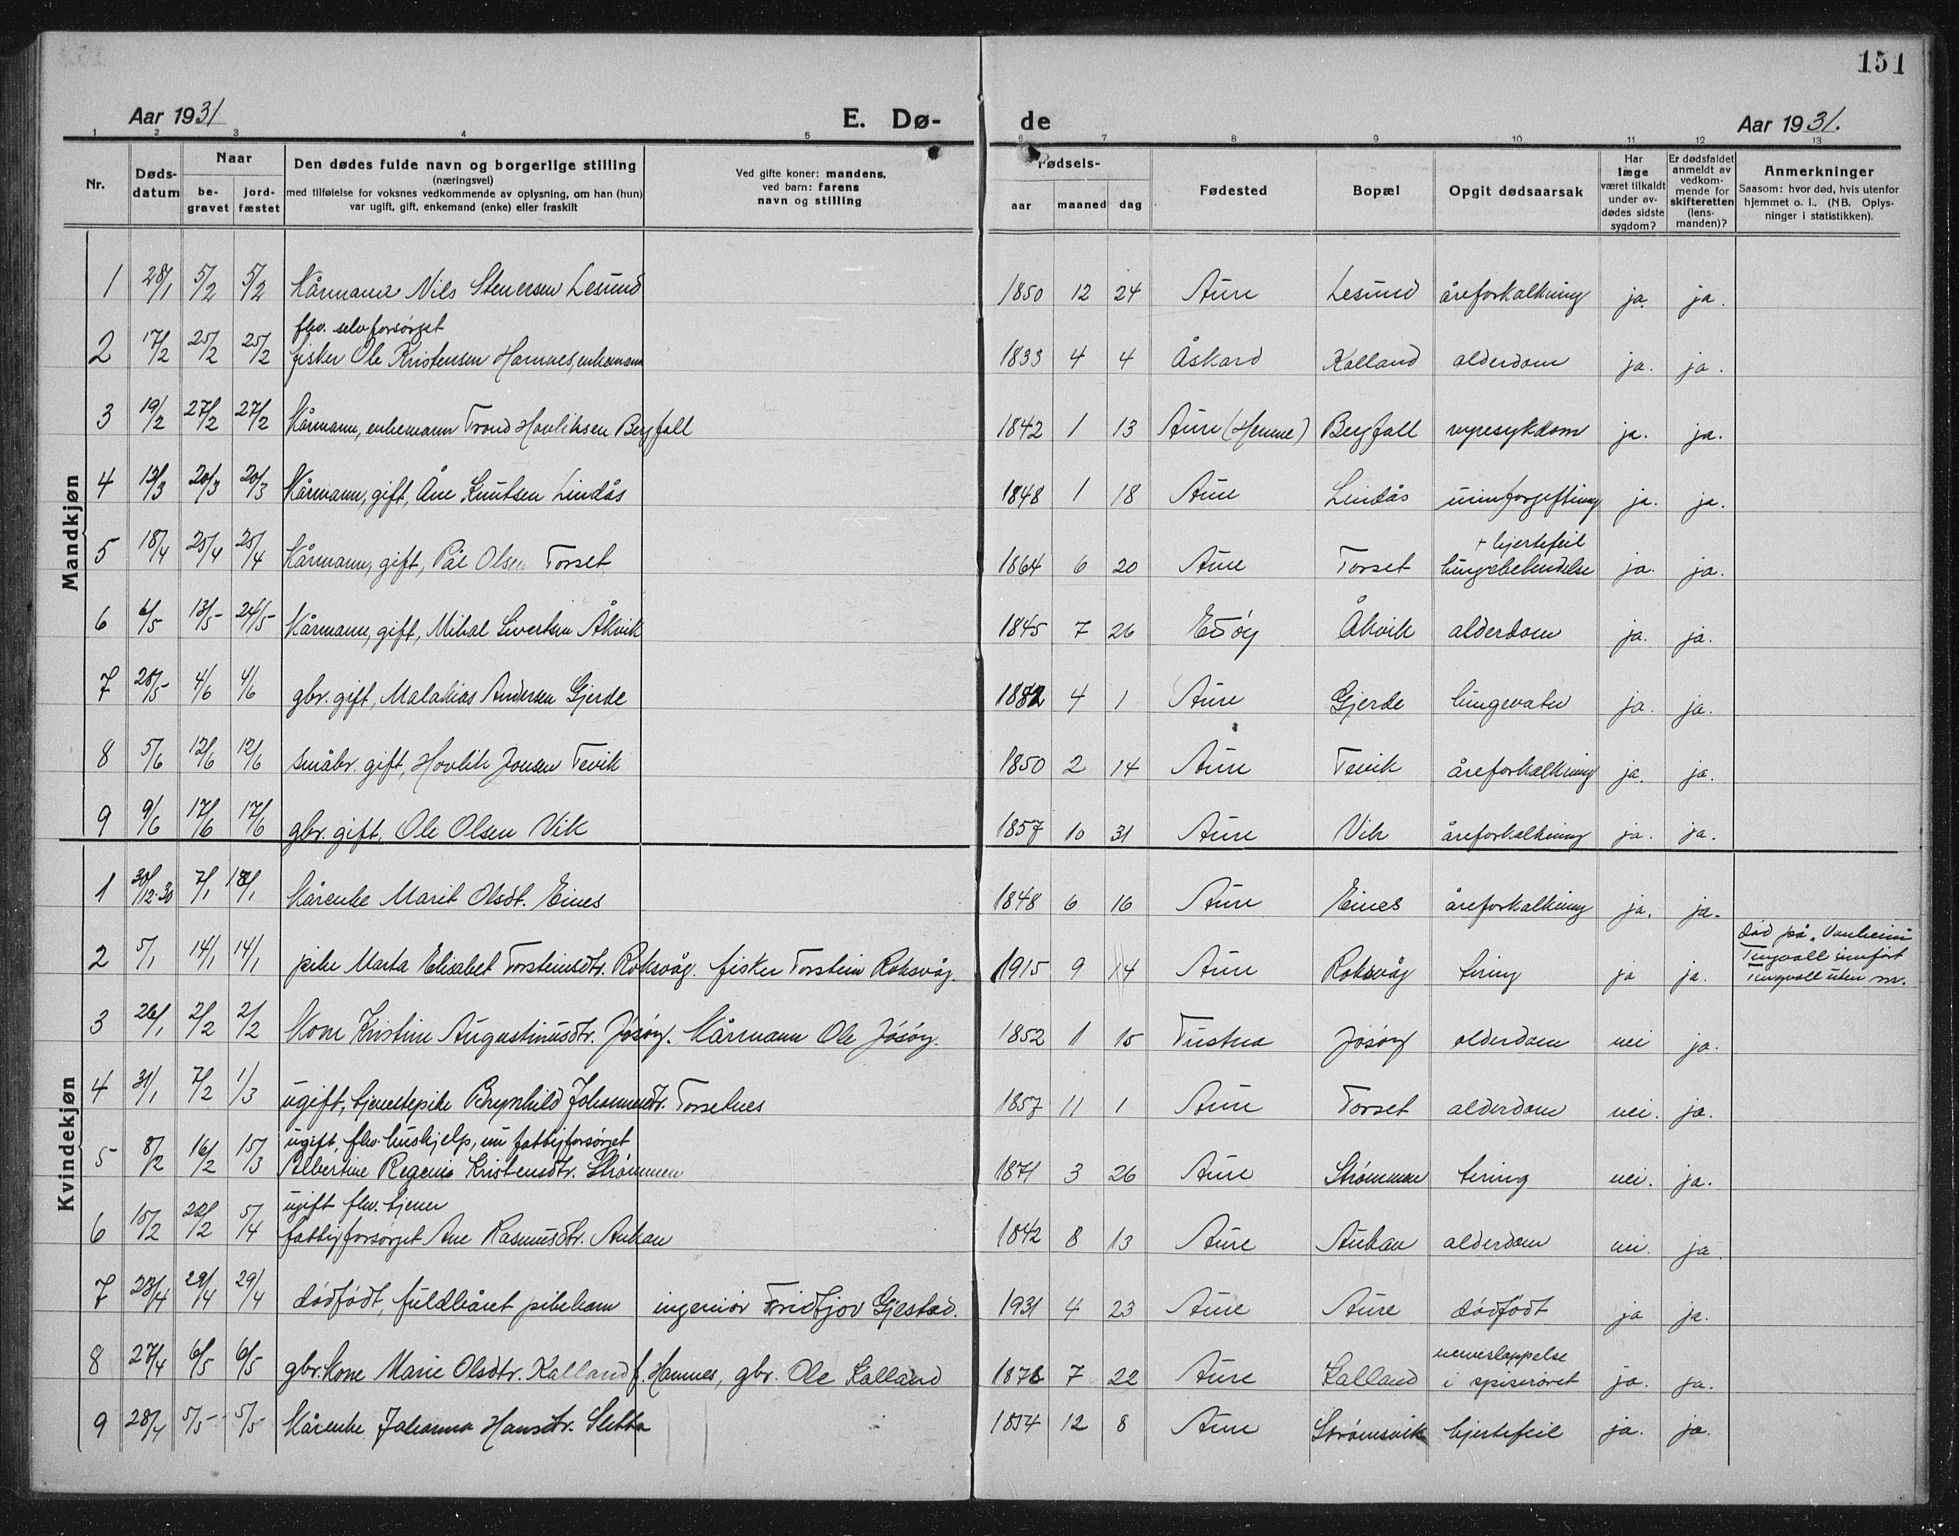 151
Aar 1931 E. Dø- de Aar 1931.
1 2 3 4 5 6 7 8 9 10 11 12 13
Nr.
Døds-
datum
Naar
be-
gravet
jord-
fæstet
Den dødes fulde navn og borgerlige stilling
(næringsvei)
med tilføielse for voksnes vedkommende av oplysning, om han (hun)
var ugift, gift, enkemand (enke) eller fraskilt
Ved gifte koner: mandens,
ved barn: farens
navn og stilling
Fødsels-
aar maaned dag
Fødested
Bopæl
Opgit dødsaarsak
Har
læge
været tilkaldt
under av-
dødes sidste
sygdom?
Er dødsfaldet
anmeldt av
vedkom-
mende for
skifteretten
(lens-
manden)?
Anmerkninger
Saasom: hvor død, hvis utenfor
hjemmet o. l., (NB. Oplys-
ninger i statistikken).
Mandkjøn
1 28/1 5/2 5/2 Kårmann Nils Stenersen Lesund 1850 12 24 Aure Lesund åreforkalkning ja. ja.
flv. selvforsørget
2 17/2 25/2 25/2 fisker Ole Kristensen Hamnes, enkemann 1833 4 4 Åskard Kalland alderdom ja. ja.
3 19/2 27/2 27/2 Kårmann, enkemann Trond Hovliksen Bergfall 1842 1 13 Aure (Hemne) Bergfall nyresykdom ja. ja.
4 13/3 20/3 20/3 Kårmann, gift, Åne Knutsen Lindås 1848 1 18 Aure Lindås urinforgiftning ja. ja.
+ hjertefeil
5 18/4 25/4 25/4 Kårmann, gift, Pål Olsen Torset 1864 6 20 Aure Torset lungebetendelse ja. ja.
6 6/5 13/5 24/5 Kårmann, gift, Mikal Sivertsen Åkvik 1845 7 26 Edøy Åkvik alderdom ja. ja.
7 28/5 4/6 4/6 gbr. gift, Malakias Andersen Gjerde 1882 4 1 Aure Gjerde ja. ja.
8 5/6 12/6 12/6 småbr. gift, Hovlik Jonsen Tevik 1850 2 14 Aure Tevik åreforkalkning ja. ja.
9 9/6 17/6 17/6 gbr. gift, Ole Olsen Vik 1857 10 31 Aure Vik åreforkalkning ja. ja.
Kvindekjøn
1 30/12-30 7/1 18/1 Kårenke Marit Olsdt. Eines 1848 6 16 Aure Eines åreforkalkning ja. ja.
død på "Vonheim"
2 5/1 14/1 14/1 pike Marta Elisabet Torsteinsdtr. Roksvåg. fisker Torstein Roksvåg. 1915 9 14 Aure Roksvåg tæring ja ja. Tingvoll innført
Tingvoll uten nr.
3 26/1 2/2 2/2 Kone Kristine Augustinusdtr. Jøsøy. Kårmann Ole Jøsøy. 1852 1 15 Tustna Jøsøy alderdom nei ja.
4 31/1 7/2 1/3 ugift, tjenestepike Brynhild Johannesdtr. Torsetnes 1857 11 1 Aure Torset alderdom nei. ja.
ugift, flv. hushjelp, nu fattigforsørget
5 8/2 16/2 15/3 Albertine Regine Kristensdtr. Strømmen 1871 3 26 Aure Strømmen tæring nei. ja.
ugift flv. tjener
6 15/2 22/2 5/4 fattigforsørget Ane Rasmusdtr. Aukan 1842 8 13 Aure Aukan alderdom nei. ja.
7 23/4 29/4 29/4 dødfødt, fuldbåret pikebarn ingeniør Fridtjov Gjestad. 1931 4 23 Aure Aure dødfødt ja ja.
nerveslappelse
8 27/4 6/5 6/5 gbr. kone Marie Olsdtr. Kalland f. Hamnes, gbr. Ole Kalland 1876 7 22 Aure Kalland i spiserøret ja. ja.
9 28/4 5/5 5/5 Kårenke Johanna Hansdtr. Sletta 1854 12 8 Aure Strømsvik hjertefeil ja. ja.